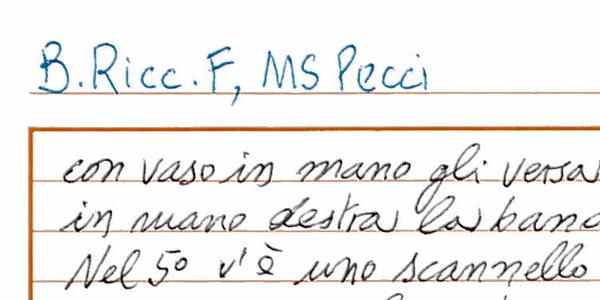 B.Ricc.F, MS Pecci
con vaso in mano gli versa
in mano destra la band
Nel 5º v'è uno scannello